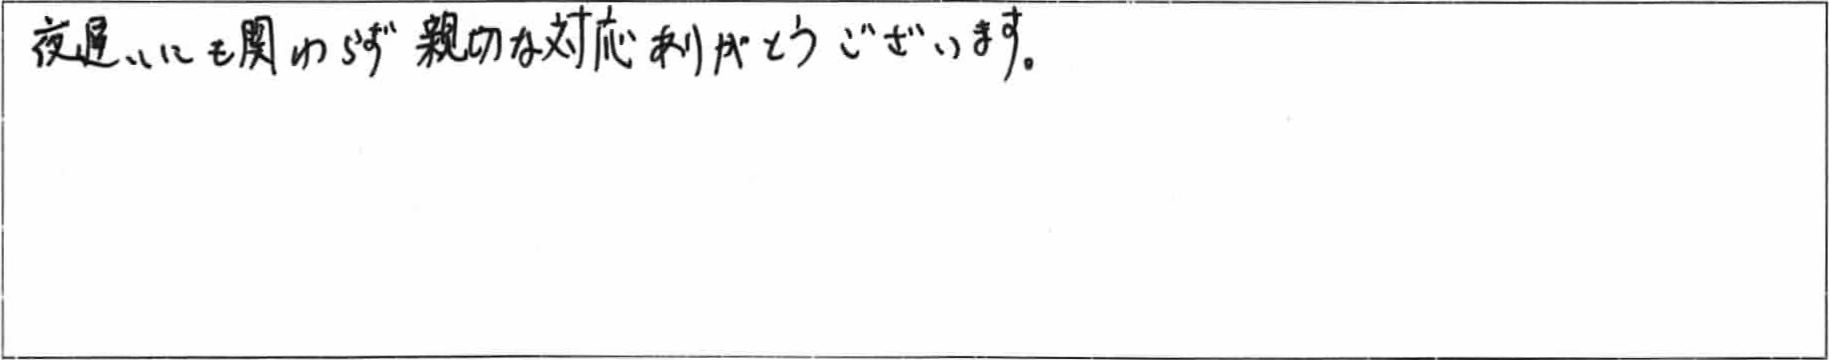 夜遅いにも関わらず親切な対応ありがとうございます。